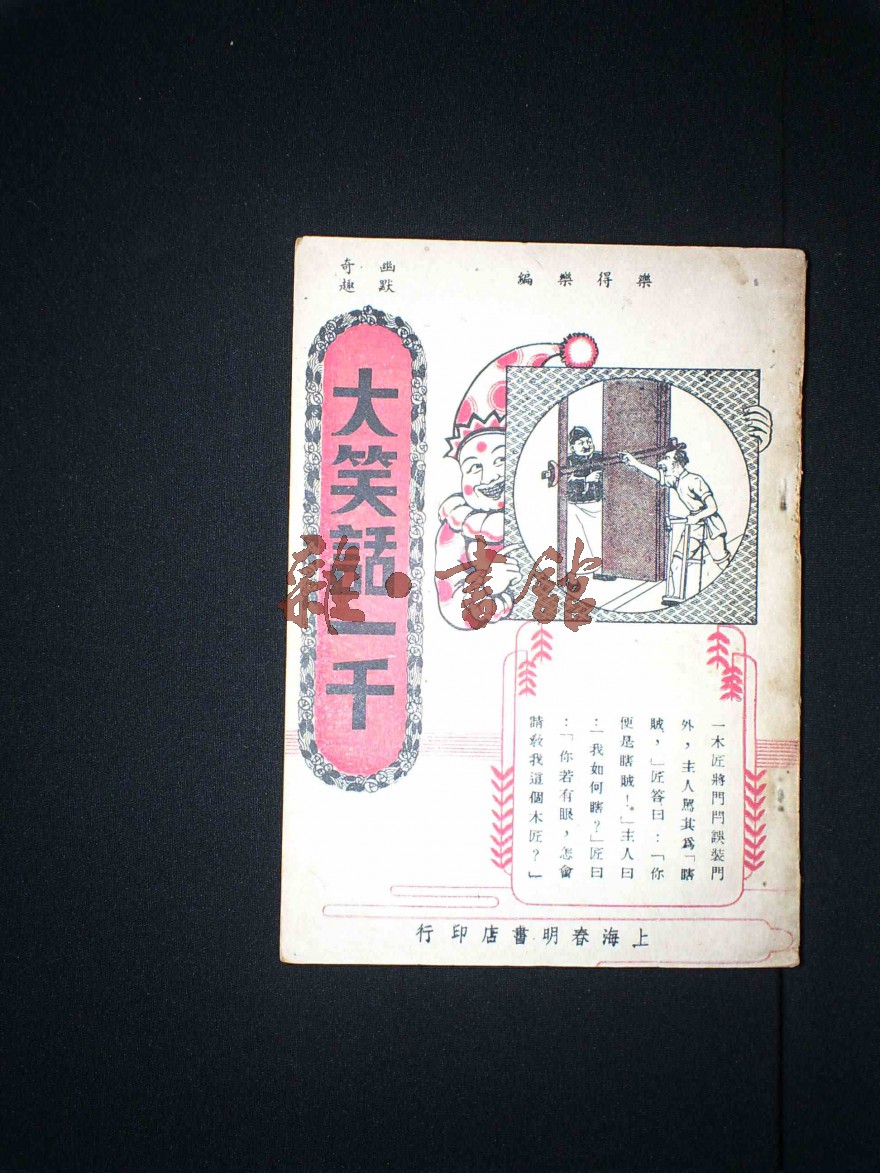 幽默
奇趣
樂得樂編
大笑話一千
一木匠將門閂誤裝門
外，主人罵其爲「瞎
賊，」匠答曰：「你
便是瞎賊！」主人曰
：「我如何瞎？」匠曰
：「你若有眼，怎會
請教我這個木匠？」
上海春明書店印行
雜·書館